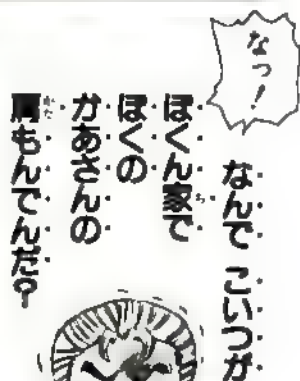 なっ!
なんで こいつが
ぼくん家で
ぼくの
かあさんの
肩もんでんだ?